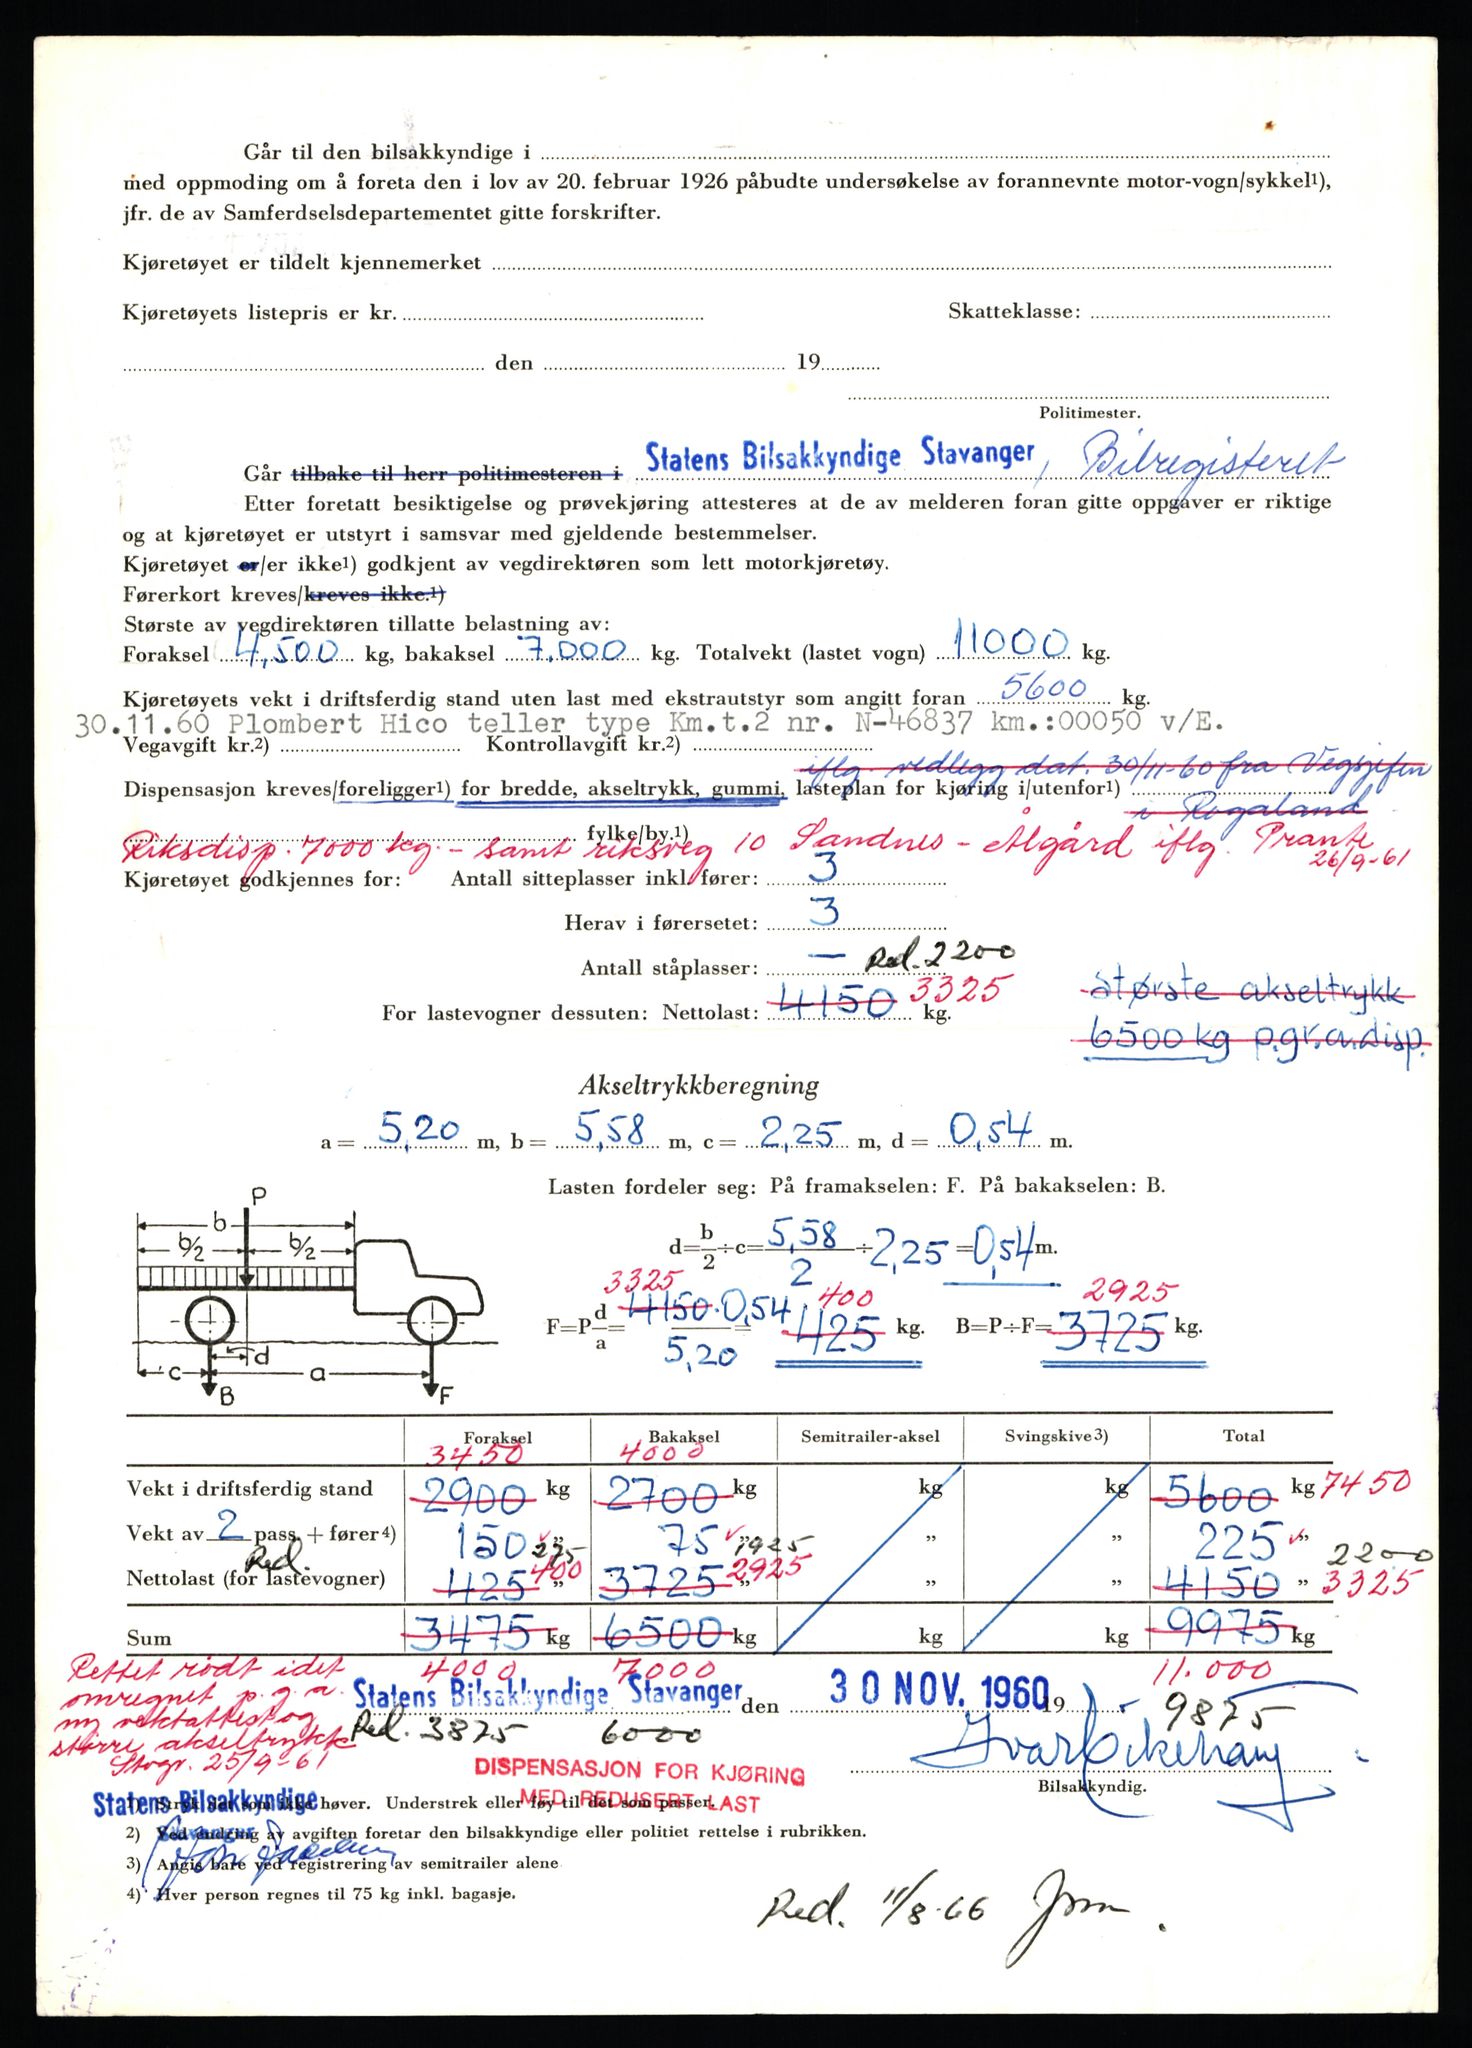 Går til den bilsakkyndige i
med oppmoding om å foreta den i lov av 20. februar 1926 påbudte undersøkelse av forannevnte motor-vogn/sykkel1),
jfr. de av Samferdselsdepartementet gitte forskrifter.
Kjøretøyet er tildelt kjennemerket
Kjøretøyets listepris er kr. Skatteklasse:
den 19
Politimester.
Går tilbake til herr politimesteren i Statens Bilsakkyndige Stavanger, Bilregisteret
Etter foretatt besiktigelse og prøvekjøring attesteres at de av melderen foran gitte oppgaver er riktige
og at kjøretøyet er utstyrt i samsvar med gjeldende bestemmelser.
Kjøretøyet er/er ikke1) godkjent av vegdirektøren som lett motorkjøretøy.
Førerkort kreves/kreves ikke.1)
Største av vegdirektøren tillatte belastning av:
Foraksel 4,500 kg, bakaksel 7.000 kg. Totalvekt (lastet vogn) 11000 kg.
Kjøretøyets vekt i driftsferdig stand uten last med ekstrautstyr som angitt foran 5600 kg.
30.11.60 Plombert Hico teller type Km.t.2 nr. N-46837 km.:00050 v/E.
Vegavgift kr.2) Kontrollavgift kr.2)
iflg. vedlegg dat. 30/11-60 fra Vegsjefen
Dispensasjon kreves/foreligger1) for bredde, akseltrykk, gummi, lasteplan for kjøring i/utenfor1)
i Rogaland
fylke/by.1)
Riksdisp. 7000 kg. - samt riksveg 10 Sandnes - Ålgård iflg. Prante
26/9-61
Kjøretøyet godkjennes for: Antall sitteplasser inkl. fører: 3
Herav i førersetet: 3
Antall ståplasser: — Red. 2200
For lastevogner dessuten: Nettolast: 4150 3325 kg.
største akseltrykk
6500 kg p.gr.a.disp.
Akseltrykkberegning
a = 5,20 m, b = 5,58 m, c = 2,25 m, d = 0,54 m.
Lasten fordeler seg: På framakselen: F. På bakakselen: B.
P
b
b/2 b/2
d=b/2÷c= 5,58/2 ÷ 2,25 = 0,54 m.
3325 400 2925
F=P d/a= 4150·0,54/5,20 = 425 kg. B=P÷F= 3725 kg.
d
c a
B F
Foraksel Bakaksel Semitrailer-aksel Svingskive3) Total
3450 4000
Vekt i driftsferdig stand 2900 kg 2700 kg kg kg 5600 kg 7450
Vekt av 2 pass. + fører4) 150 „ 75 „ „ „ 225 „
Red. 275 1925 2200
Nettolast (for lastevogner) 425 400 „ 3725 „ 2925 „ „ 4150 „ 3325
Sum 3475 kg 6500 kg kg kg 9975 kg
4000 7000 11.000
Rettet rødt idet
omregnet p.g.a.
ny vektattest og
større akseltrykk
Stvgr. 25/9-61
Statens Bilsakkyndige Stavanger den 30 NOV. 1960 19
Red. 3875 6000 9875
DISPENSASJON FOR KJØRING
MED REDUSERT LAST
Bilsakkyndig.
Statens Bilsakkyndige
Stavanger
1) Stryk det som ikke høver. Understrek eller føy til det som passer.
2) Ved endring av avgiften foretar den bilsakkyndige eller politiet rettelse i rubrikken.
3) Angis bare ved registrering av semitrailer alene
4) Hver person regnes til 75 kg inkl. bagasje.
Red. 11/8-66